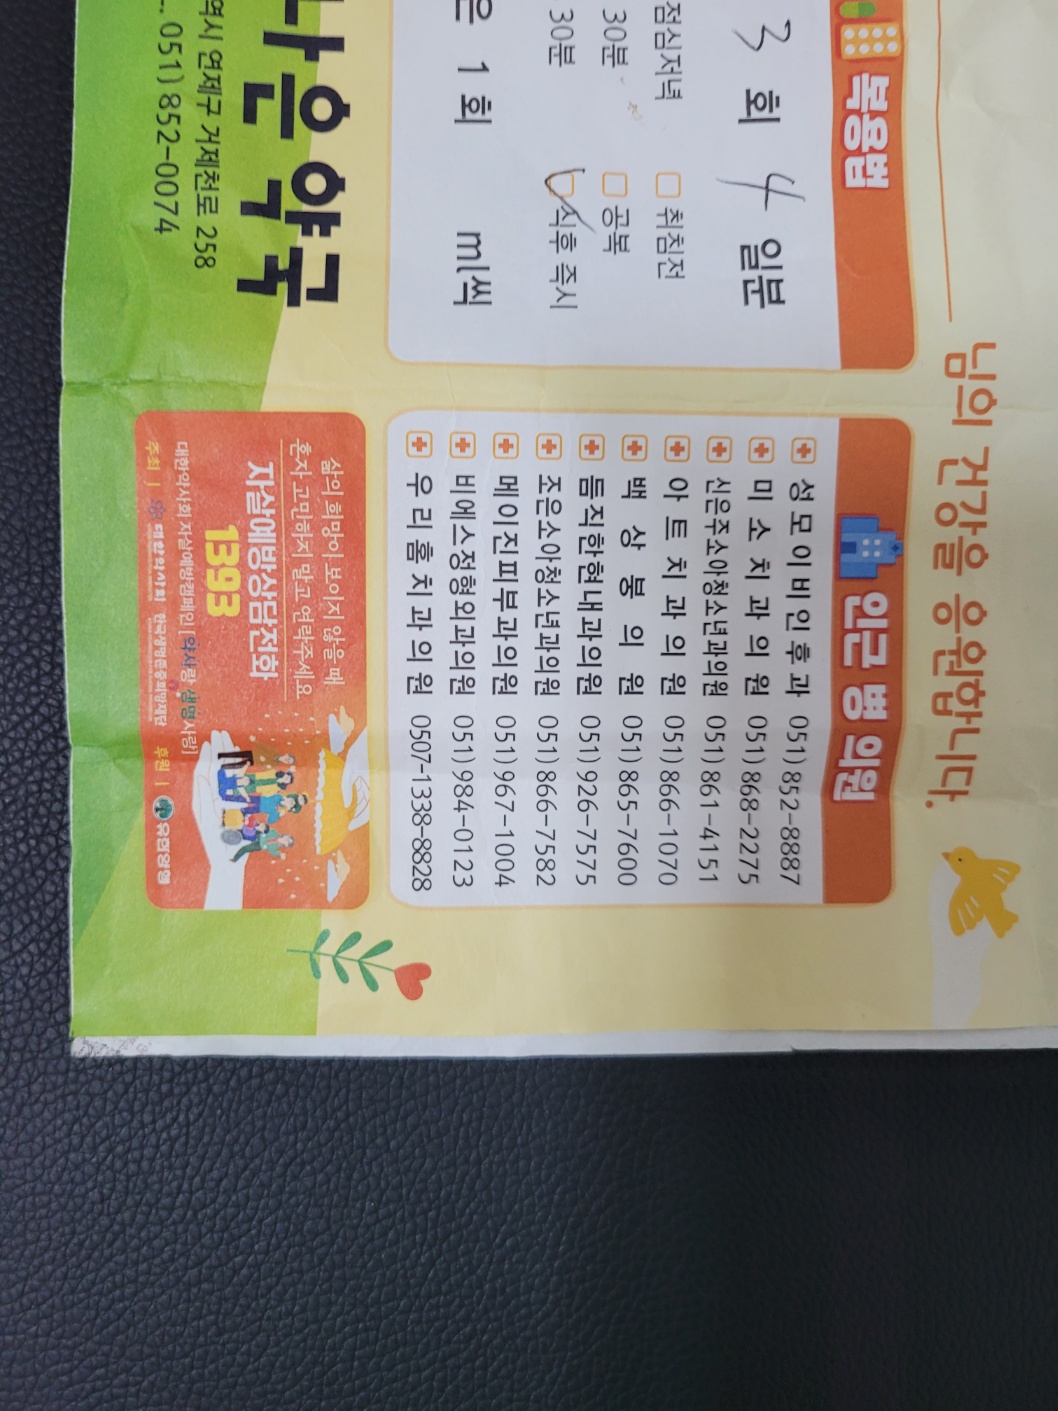 님의 건강을 응원합니다.
복용법
3 회 4 일분
점심저녁 취침전
30분 공복
30분 식후 즉시
은 1 회 ml씩
인근 병 의원
성모이비인후과 051)852-8887
미소치과의원 051)868-2275
신은주소아청소년과의원 051)861-4151
아트치과의원 051)866-1070
백상봉의원 051)865-7600
듬직한현내과의원 051)926-7575
조은소아청소년과의원 051)866-7582
메이진피부과의원 051)967-1004
비에스정형외과의원 051)984-0123
우리홈치과의원 0507-1338-8828
나은약국
역시 연제구 거제천로 258
051)852-0074
삶의 희망이 보이지 않을 때
혼자 고민하지 말고 연락주세요
자살예방상담전화
1393
대한약사회 자살예방캠페인 [약사랑 생명사랑]
주최 | 대한약사회 한국생명존중희망재단 후원 | 유한양행